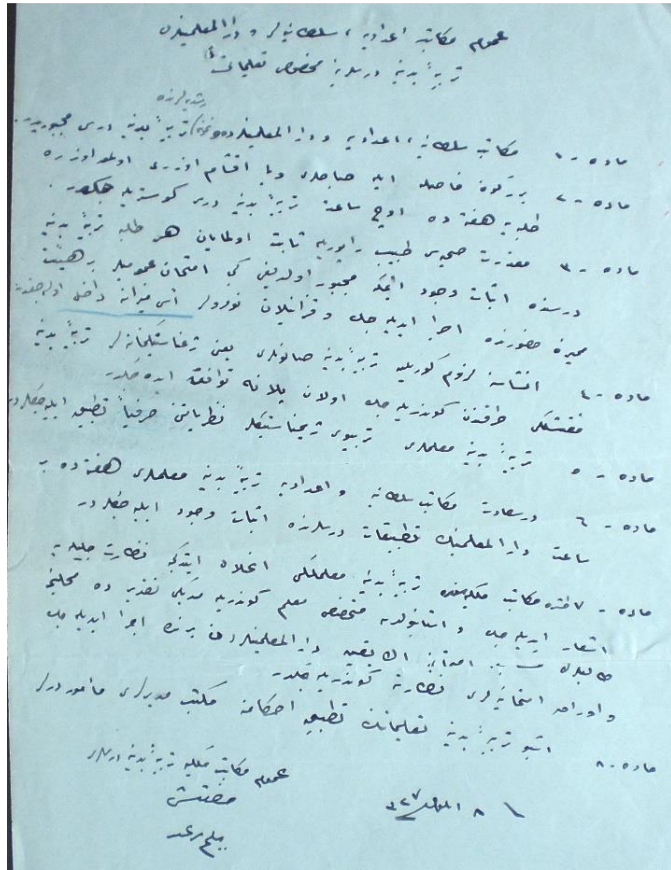 عموم مكاتب اعداديه ، سلطانيه لر ، دار المعلمينلرك
تربيۀ بدنيه درسلرينه مخصوص تعليمات
رشديه لرنده
ماده - ١ مكاتب سلطانيه ، اعداديه و دار المعلمينلرده تربيۀ بدنيه درسى مجبوريدر
ماده - ٢ برر كون فاصله ايله صباحلرى ويا اقشام اوزرى اولمق اوزره
طلبه يه هفته ده اوچ ساعت تربيۀ بدنيه درسى كوستريله جكدر .
ماده - ٣ معذرت صحيه سى طبيب راپوريله ثابت اولمايان هر طلبه تربيۀ بدنيه
درسنده اثبات وجود ايتمكه مجبور اولديغى كبى امتحان عموميلر بر هيئت
مميزه حضورنده اجرا ايديله جك و قزانيلان نومرولر داخل اوله جقدر
ماده - ٤ انشاسنه لزوم كوريلن تربيۀ بدنيه صالونلرى يعنى ژيمناستيكخانه لر تربيۀ بدنيه
مفتشلكى طرفندن كوندريله جك اولان پلانه توافق ايده جكدر
ماده - ٥ تربيۀ بدنيه معلملرى تربيوى ژيمناستيكك نظرياتنى حرفياً تطبيق ايديله جكلردر
ماده - ٦ درسعادت مكاتب سلطانيه و اعداديه تربيۀ بدنيه معلملرى هفته ده بر
ساعت دار المعلمينك تطبيقات درسلرنده اثبات وجود ايليه جكلردر
ماده - ٧ مكاتب ملكيه تربيۀ بدنيه معلملكى انحلال ايتدكده نظارت جليله يه
اشعار ايديله جك و استانبولدن متخصص معلم كوندريله مديكى تقديرده محلنجه
امتحانى دار المعلمينلردن برنده اجرا ايديله جك
و اوراق امتحانيه لرى نظارته كوندريله جكدر
ماده - ٨ اشبو تربيۀ بدنيه تعليماتنك تطبيق احكامنه مكتب مديرلرى مأموردرلر
عموم مكاتب ملكيه تربيۀ بدنيه
مفتشى
٨ ايلول ٣٢٧